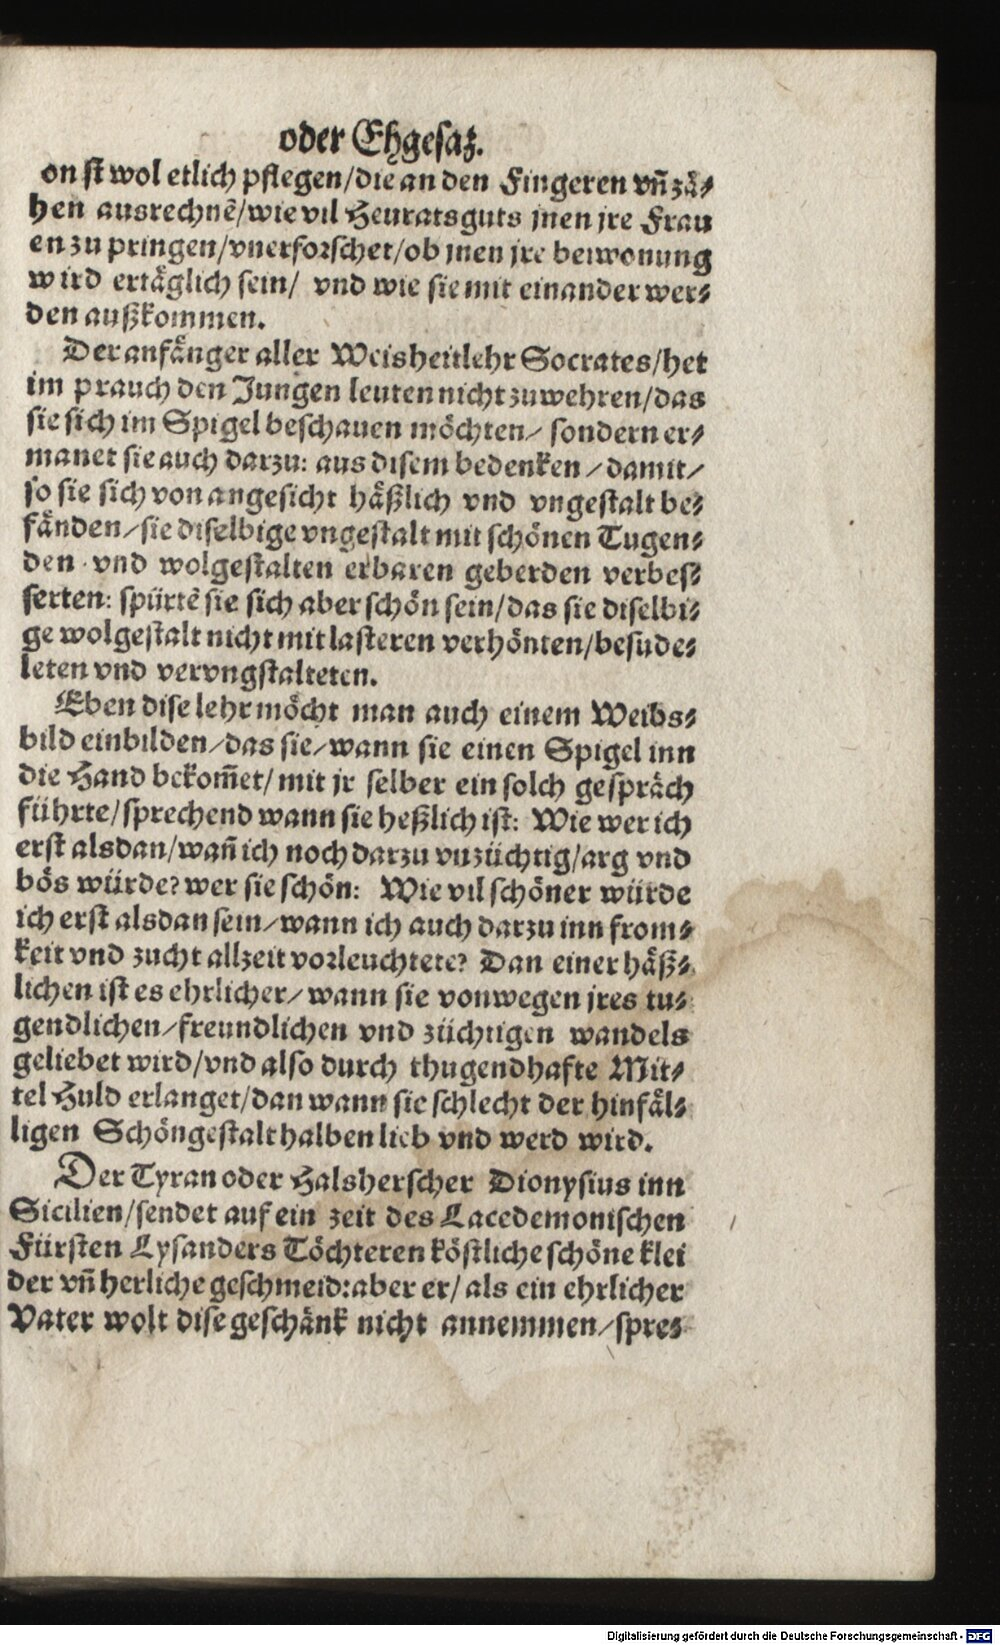 oder Ehgesaz.
on st wol etlich pflegen/die an den Fingeren vñ zä⸗
hen ausrechnẽ/wie vil Heuratsguts jnen jre Frau
en zu pringen/vnerforschet/ob jnen jre beiwonung
wird ertäglich sein/ vnd wie sie mit einander wer⸗
den außkommen.
Der anfänger aller Weisheitlehr Socrates/het
im prauch den Jungen leuten nicht zuwehren/das
sie sich im Spigel beschauen möchten/ sondern er⸗
manet sie auch darzu: aus disem bedenken/damit/
so sie sich von angesicht häßlich vnd vngestalt be⸗
fänden/sie diselbige vngestalt mit schönen Tugen⸗
den vnd wolgestalten erbaren geberden verbes⸗
serten: spürtẽ sie sich aber schön sein/das sie diselbi⸗
ge wolgestalt nicht mit lasteren verhönten/besude⸗
leten vnd verungstalteten.
Eben dise lehr möcht man auch einem Weibs⸗
bild einbilden/das sie/wann sie einen Spigel inn
die Hand bekom̃et/mit jr selber ein solch gespräch
führte/sprechend wann sie heßlich ist: Wie wer ich
erst alsdan/wañ ich noch darzu vnzüchtig/arg vnd
bös würde? wer sie schön: Wie vil schöner würde
ich erst alsdan sein/wann ich auch darzu inn from⸗
keit vnd zucht allzeit vorleuchtete? Dan einer häß⸗
lichen ist es ehrlicher/wann sie vonwegen jres tu⸗
gendlichen/freundlichen vnd züchtigen wandels
geliebet wird/vnd also durch thugendhafte Mit⸗
tel Huld erlanget/dan wann sie schlecht der hinfäl⸗
ligen Schöngestalt halben lieb vnd werd wird.
Der Tyran oder Halsherscher Dionysius inn
Sicilien/sendet auf ein zeit des Lacedemonischen
Fürsten Lysanders Töchteren köstliche schöne klei
der vñ herliche geschmeid: aber er/als ein ehrlicher
Vater wolt dise geschänk nicht annemmen/spre⸗
Digitalisierung gefördert durch die Deutsche Forschungsgemeinschaft - DFG